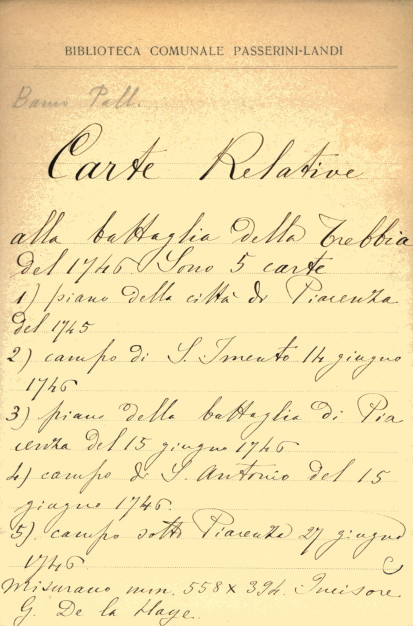 BIBLIOTECA COMUNALE PASSERINI-LANDI
Banco Pall.
Carte Relative
alla battaglia della Trebbia
del 1746 Sono 5 carte
1) piano della città di Piacenza
del 1745
2) campo di S. Imento 14 giugno
1746
3) piano della battaglia di Pia
cenza del 15 giugno 1746
4) campo di S. Antonio del 15
giugno 1746.
5) campo sotto Piacenza 27 giugno
1746
Misurano mm. 558 x 394. Incisore
G. De la Haye.